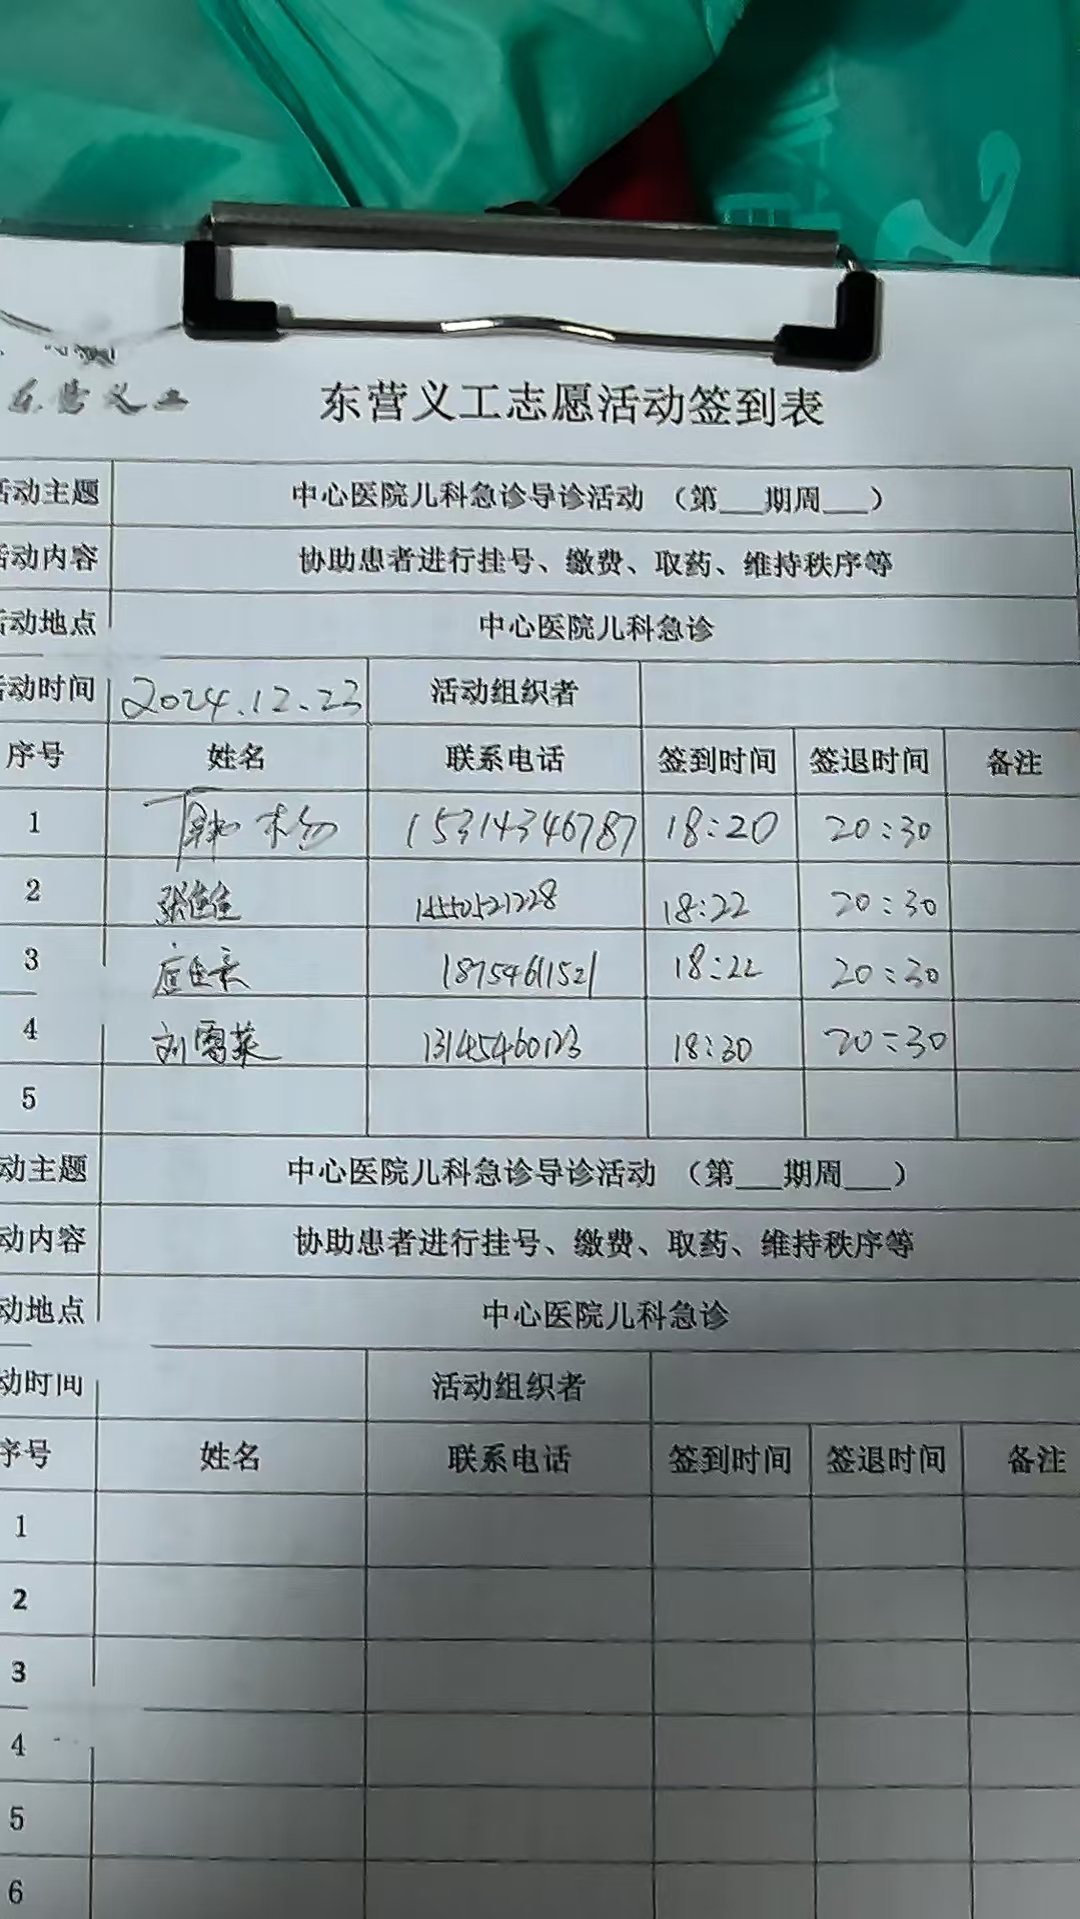 东营义工
东营义工志愿活动签到表
活动主题 中心医院儿科急诊导诊活动 （第___期周___）
活动内容 协助患者进行挂号、缴费、取药、维持秩序等
活动地点 中心医院儿科急诊
活动时间 2024.12.23 活动组织者
序号 姓名 联系电话 签到时间 签退时间 备注
1 15314346787 18:20 20:30
2 18:22 20:30
3 18754611521 18:22 20:30
4 刘雪莱 13145460123 18:30 20:30
5
动主题 中心医院儿科急诊导诊活动 （第___期周___）
动内容 协助患者进行挂号、缴费、取药、维持秩序等
动地点 中心医院儿科急诊
动时间 活动组织者
序号 姓名 联系电话 签到时间 签退时间 备注
1
2
3
4
5
6